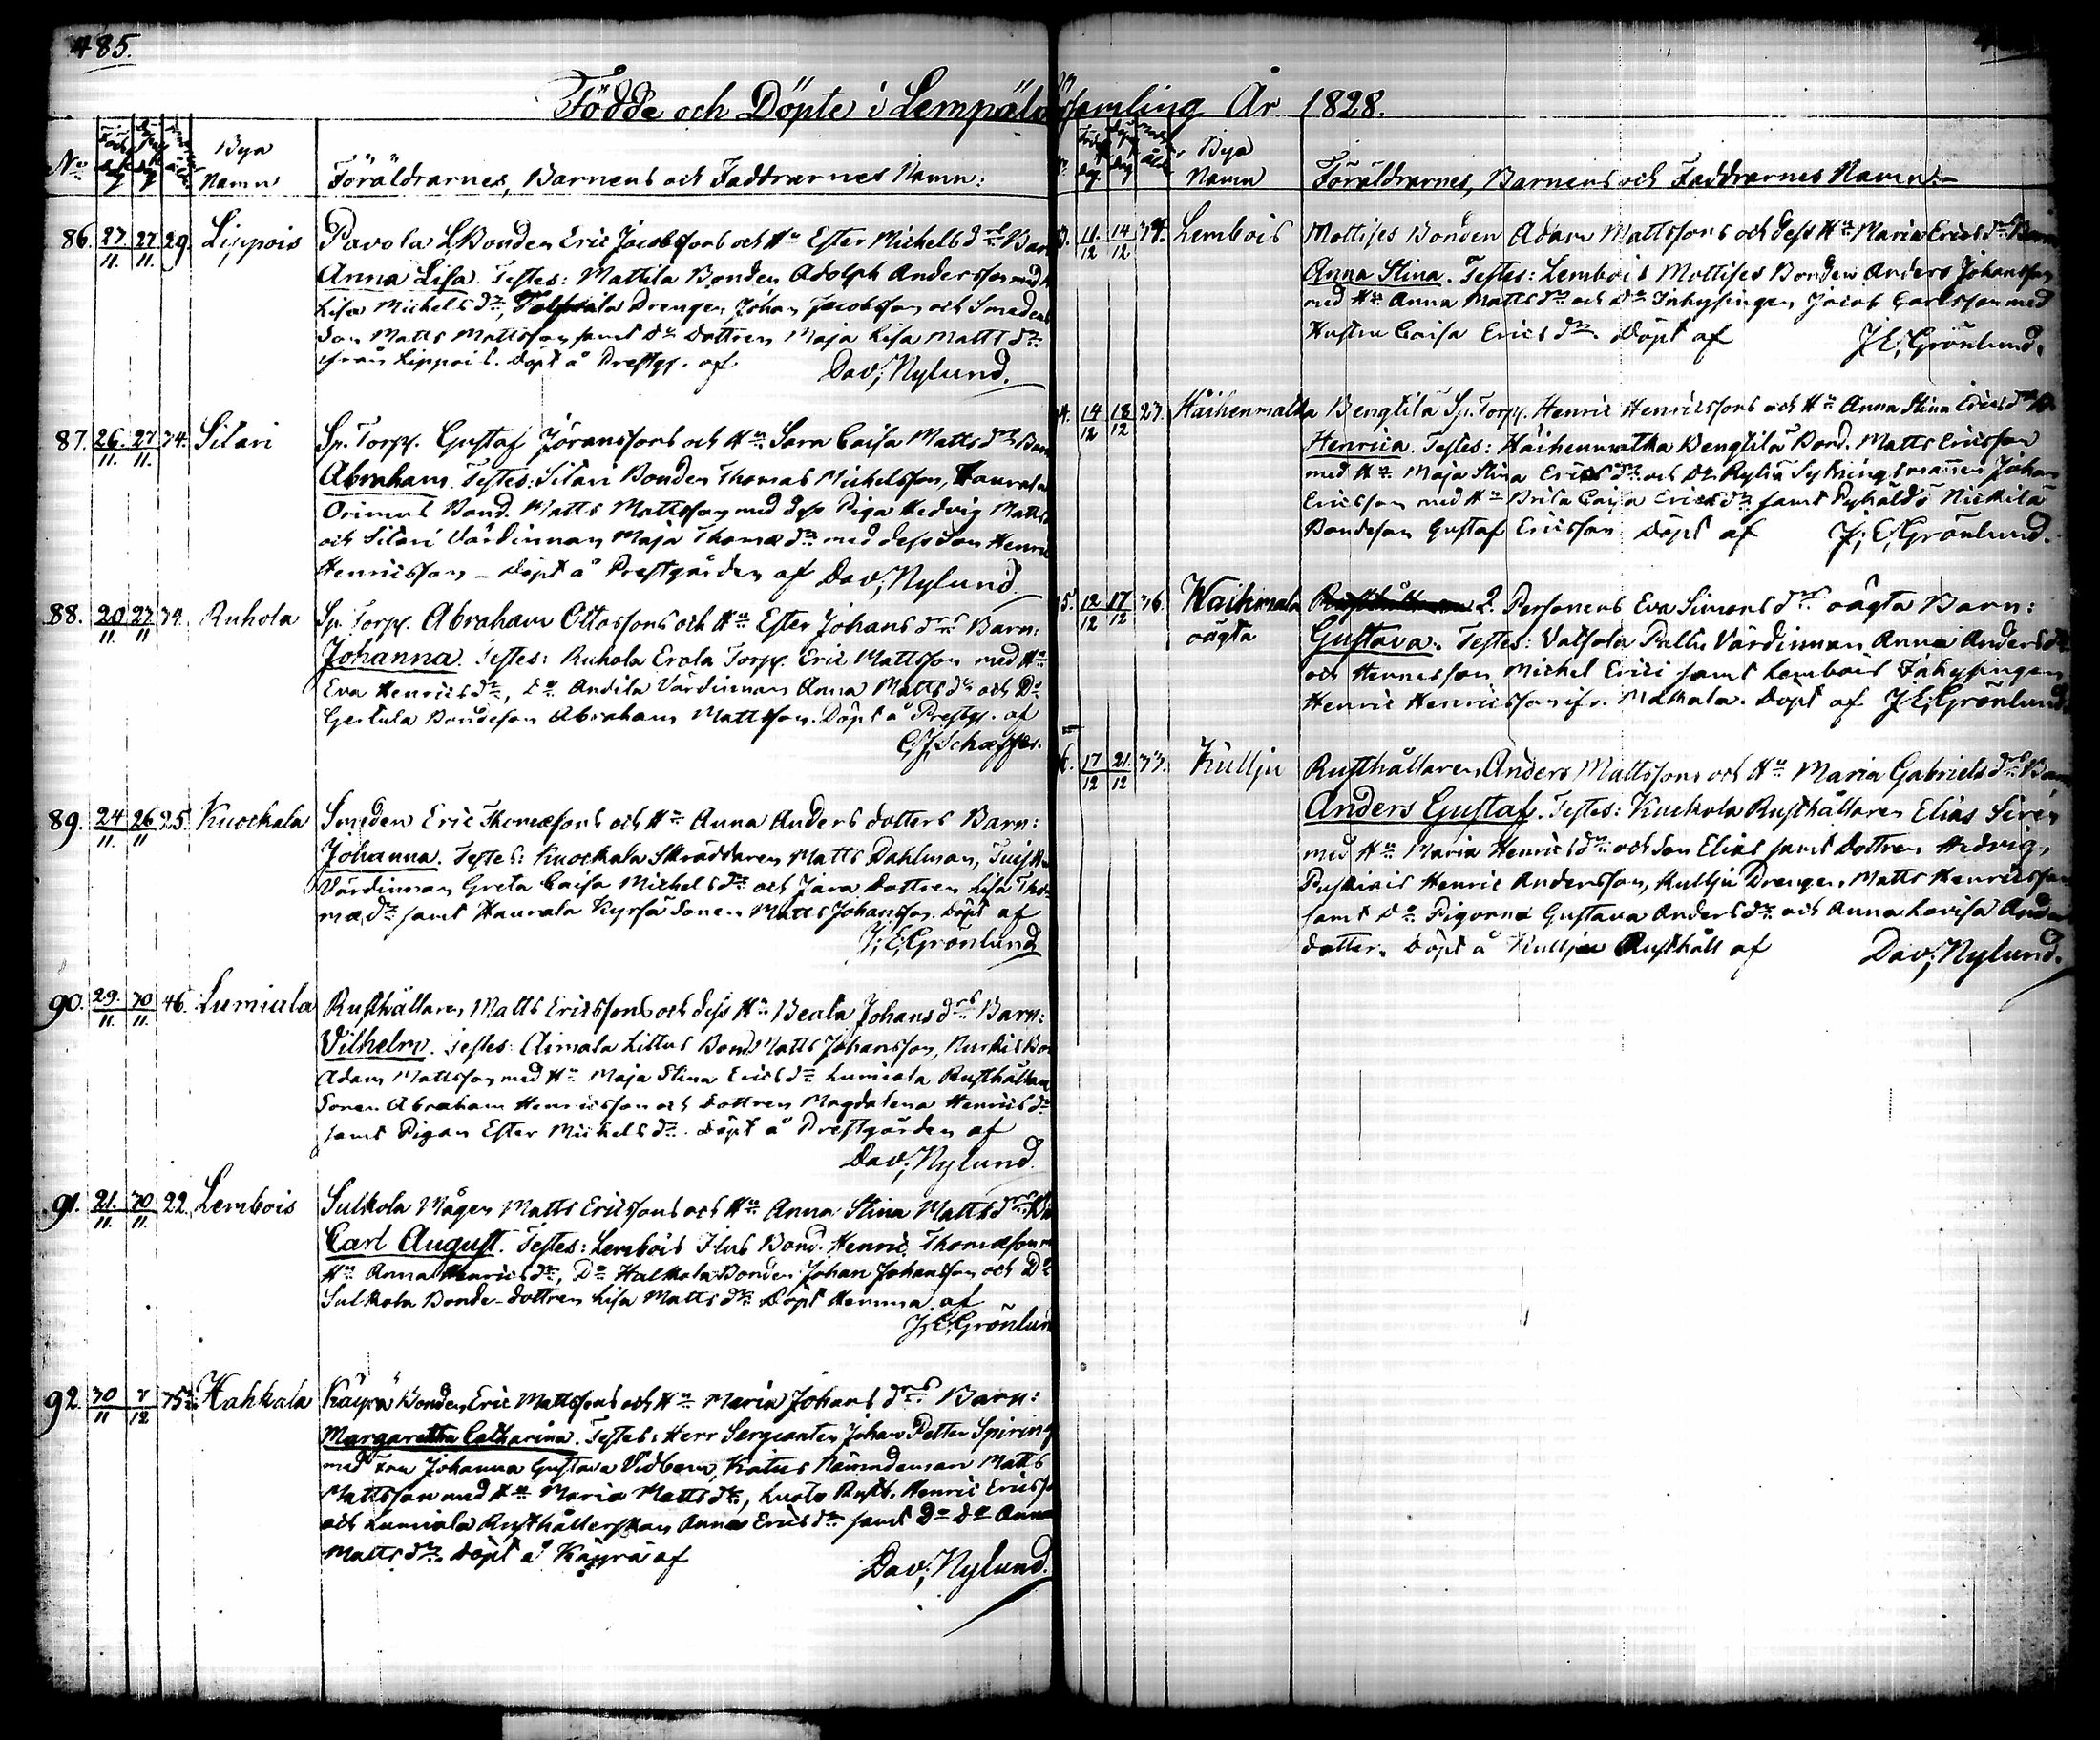 485.
Födde och Döpte i Lempälä
No
Bya
Namn
Föräldrarnes, Barnens och Faddrarnes Namn:
86. 27/11. 27/11. 29. Lippois Pavola LBonden Eric Jacobssons och Hu Ester Michels drs Barn
Anna Lisa. Testes: Mattila Bonden Adolph Andersson med
Lisa Michels dr, Drengen Johan Jacobsson och Smedens
Son Matts Mattsson samt Do Dottren Maja Lisa Matts dr
ifrån Lippois. Döpt å Prestg. af Dav; Nylund.
87. 26/11. 27/11. 34. Silari Sp. Torp. Gustaf Göranssons och Hu Sara Caisa Matts drs Barn
Abraham. Testes: Silari Bonden Thomas Michelsson, Haurala
Orimus Bond. Matts Mattsson med dess Piga Hedvig Matts
och Silari Värdinnan Maja Thomæ dr med dess Son Henric
Henricsson – döpt å Prestgården af Dav; Nylund.
88. 20/11 27/11 34. Ruhola Sp. Torp. Abraham Ottossons och Hu Ester Johans drs Barn:
Johanna. Testes: Ruhola Erola Torp. Eric Mattsson med Hu
Eva Henrics dr, Do Andila Värdinnan Anna Matts dr och Do
Gertula Bondeson Abraham Mattsson. Döpt å Prestg. af
89. 24/11. 26/11 25. Kuockala Smeden Eric Thomæsons och Hu Anna Anders dotters Barn:
Johanna. Testes: Kuockala Skräddaren Matts Dahlman,
Värdinnan Greta Caisa Michels dr och Jara Dottren Lisa Tho-
mæ dr samt Haurala Kyrsä Sonen Matts Johansson. Döpt af
J; E; Grönlund
90. 29./11. 30/11. 46. Lumiala Rusthållaren Matts Ericssons och dess Hu Beata Johans drs Barn:
Vilhelm. Testes: Aimala Littus Bond. Matts Johansson,
Adam Mattsson med Hu Maja Stina Erics dr Lumiala Rusthållare
Sonen Abraham Henricsson och Dottren Magdalena Henrics dr
samt Pigan Ester Michels dr. Döpt å Prestgården af
Dav; Nylund.
91. 21./11. 30/11. 22. Lembois Sulkola Mågen Matts Ericssons och Hu Anna Stina Matts drs
Carl August. Testes: Lembois Bond. Henric Thomæson
Hu Anna Henrics dr, Do Halkola Bonden Johan Johansson och Do
Sulkola Bonde-dottren Lisa Matts dr Döpt Hemma af
J; E; Grönlun
92. 30/11 7/12 35. Hahkala Käyrä Bonden Eric Mattssons och Hu Maria Johans drs Barn:
Margaretha Catharina. Testes: Herr Sergeanten Johan Petter Spiring
med Frn Johanna Gustava Vidbom, Nämndeman Matts
Mattsson med Hu Maria Matts dr, Rusth. Henric Ericss
och Lumiala Rusthållerskan Anna Erics dr samt Do Do Anna
Matts dr. Döpt å Käyrä af Dav; Nylund.
samling År 1828.
Bya
Namn
Föräldrarnes, Barnens och Faddrarnes Namn:–
11./12 14/12 34. Lembois Mottises Bonden Adam Mattssons och dess Hu Maria Erics drs Barn
Anna Stina. Testes: Lembois Mottises Bonden Anders Johansson
med Hu Anna Matts dr och Do Inhysingen Jacob Carlsson med
Hustru Caisa Erics dr. Döpt af J; E; Grönlund.
4. 14/12 18/12 27. Häihenmatka Bengtilä Sp. Torp. Henric Henricssons och Hu Anna Stina Erics drs
Henrica. Testes: Häihenmatka Bengtilä Bond. Matts Ericsson
med Hu Maja Stina Erics dr och Sextningsmannen Johan
Ericsson med Hu Brita Caisa Erics dr samt Nickilä
Bondeson Gustaf Ericsson Döpt af J; E; Grönlund.
5. 12/12 17/12 36. Waihmala oägta 2. Personens Eva Simons drs oägta Barn:
Gustava. Testes: Värdinnan Anna Anders dr
och Hennes son Michel Erici samt Lembois Inhysingen
Henric Henricsson ifr. Malkala. Döpt af J; E; Grönlund.
6. 17/12 21./12 33. Kulju Rusthållaren Anders Mattssons och Hu Maria Gabriels drs Barn
Anders Gustaf. Testes: Kuckola Rusthållaren Elias Sirén
med Hu Maria Henrics dr och Son Elias samt Dottren Hedvig,
Henric Andersson, Kulju Drengen Matts Henricsson
samt Do Pigorna Gustava Anders dr och Anna Lovisa Anders
dotter. Döpt å Kulju Rusthåll af Dav; Nylund.